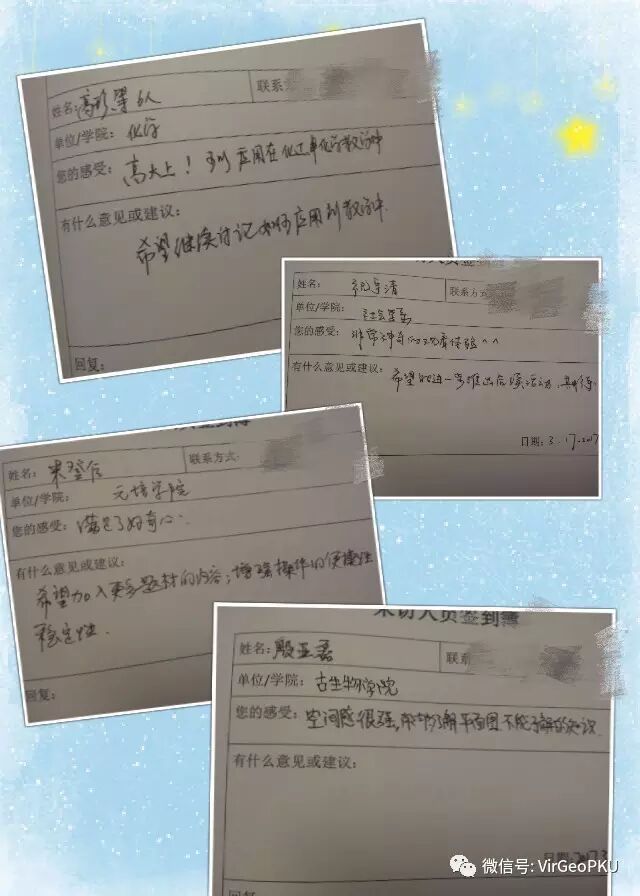 姓名: 高珍等6人
联系
单位/学院: 化学
您的感受: 高大上！可以应用在化工单化学教学中
有什么意见或建议:
希望继续讨论如何应用到教学中.
回复:
访人员签到簿
姓名:
联系方式:
单位/学院:
您的感受: 非常神奇的观看体验^^
有什么意见或建议: 希望能进一步推出后续活动,
日期: 3.17.2017
员签到簿
姓名: 朱登信
联系方式:
单位/学院: 元培学院
您的感受: 满足了好奇心.
有什么意见或建议:
希望加入更多题材的内容; 增强操作的便捷性
稳定性.
回复:
来访人员签到簿
姓名: 殷亚磊
联系
单位/学院: 古生物学院
您的感受: 空间感很强, 帮助了解平面图不能了解的知识.
有什么意见或建议:
日期: 2017.3
回复
微信号: VirGeoPKU